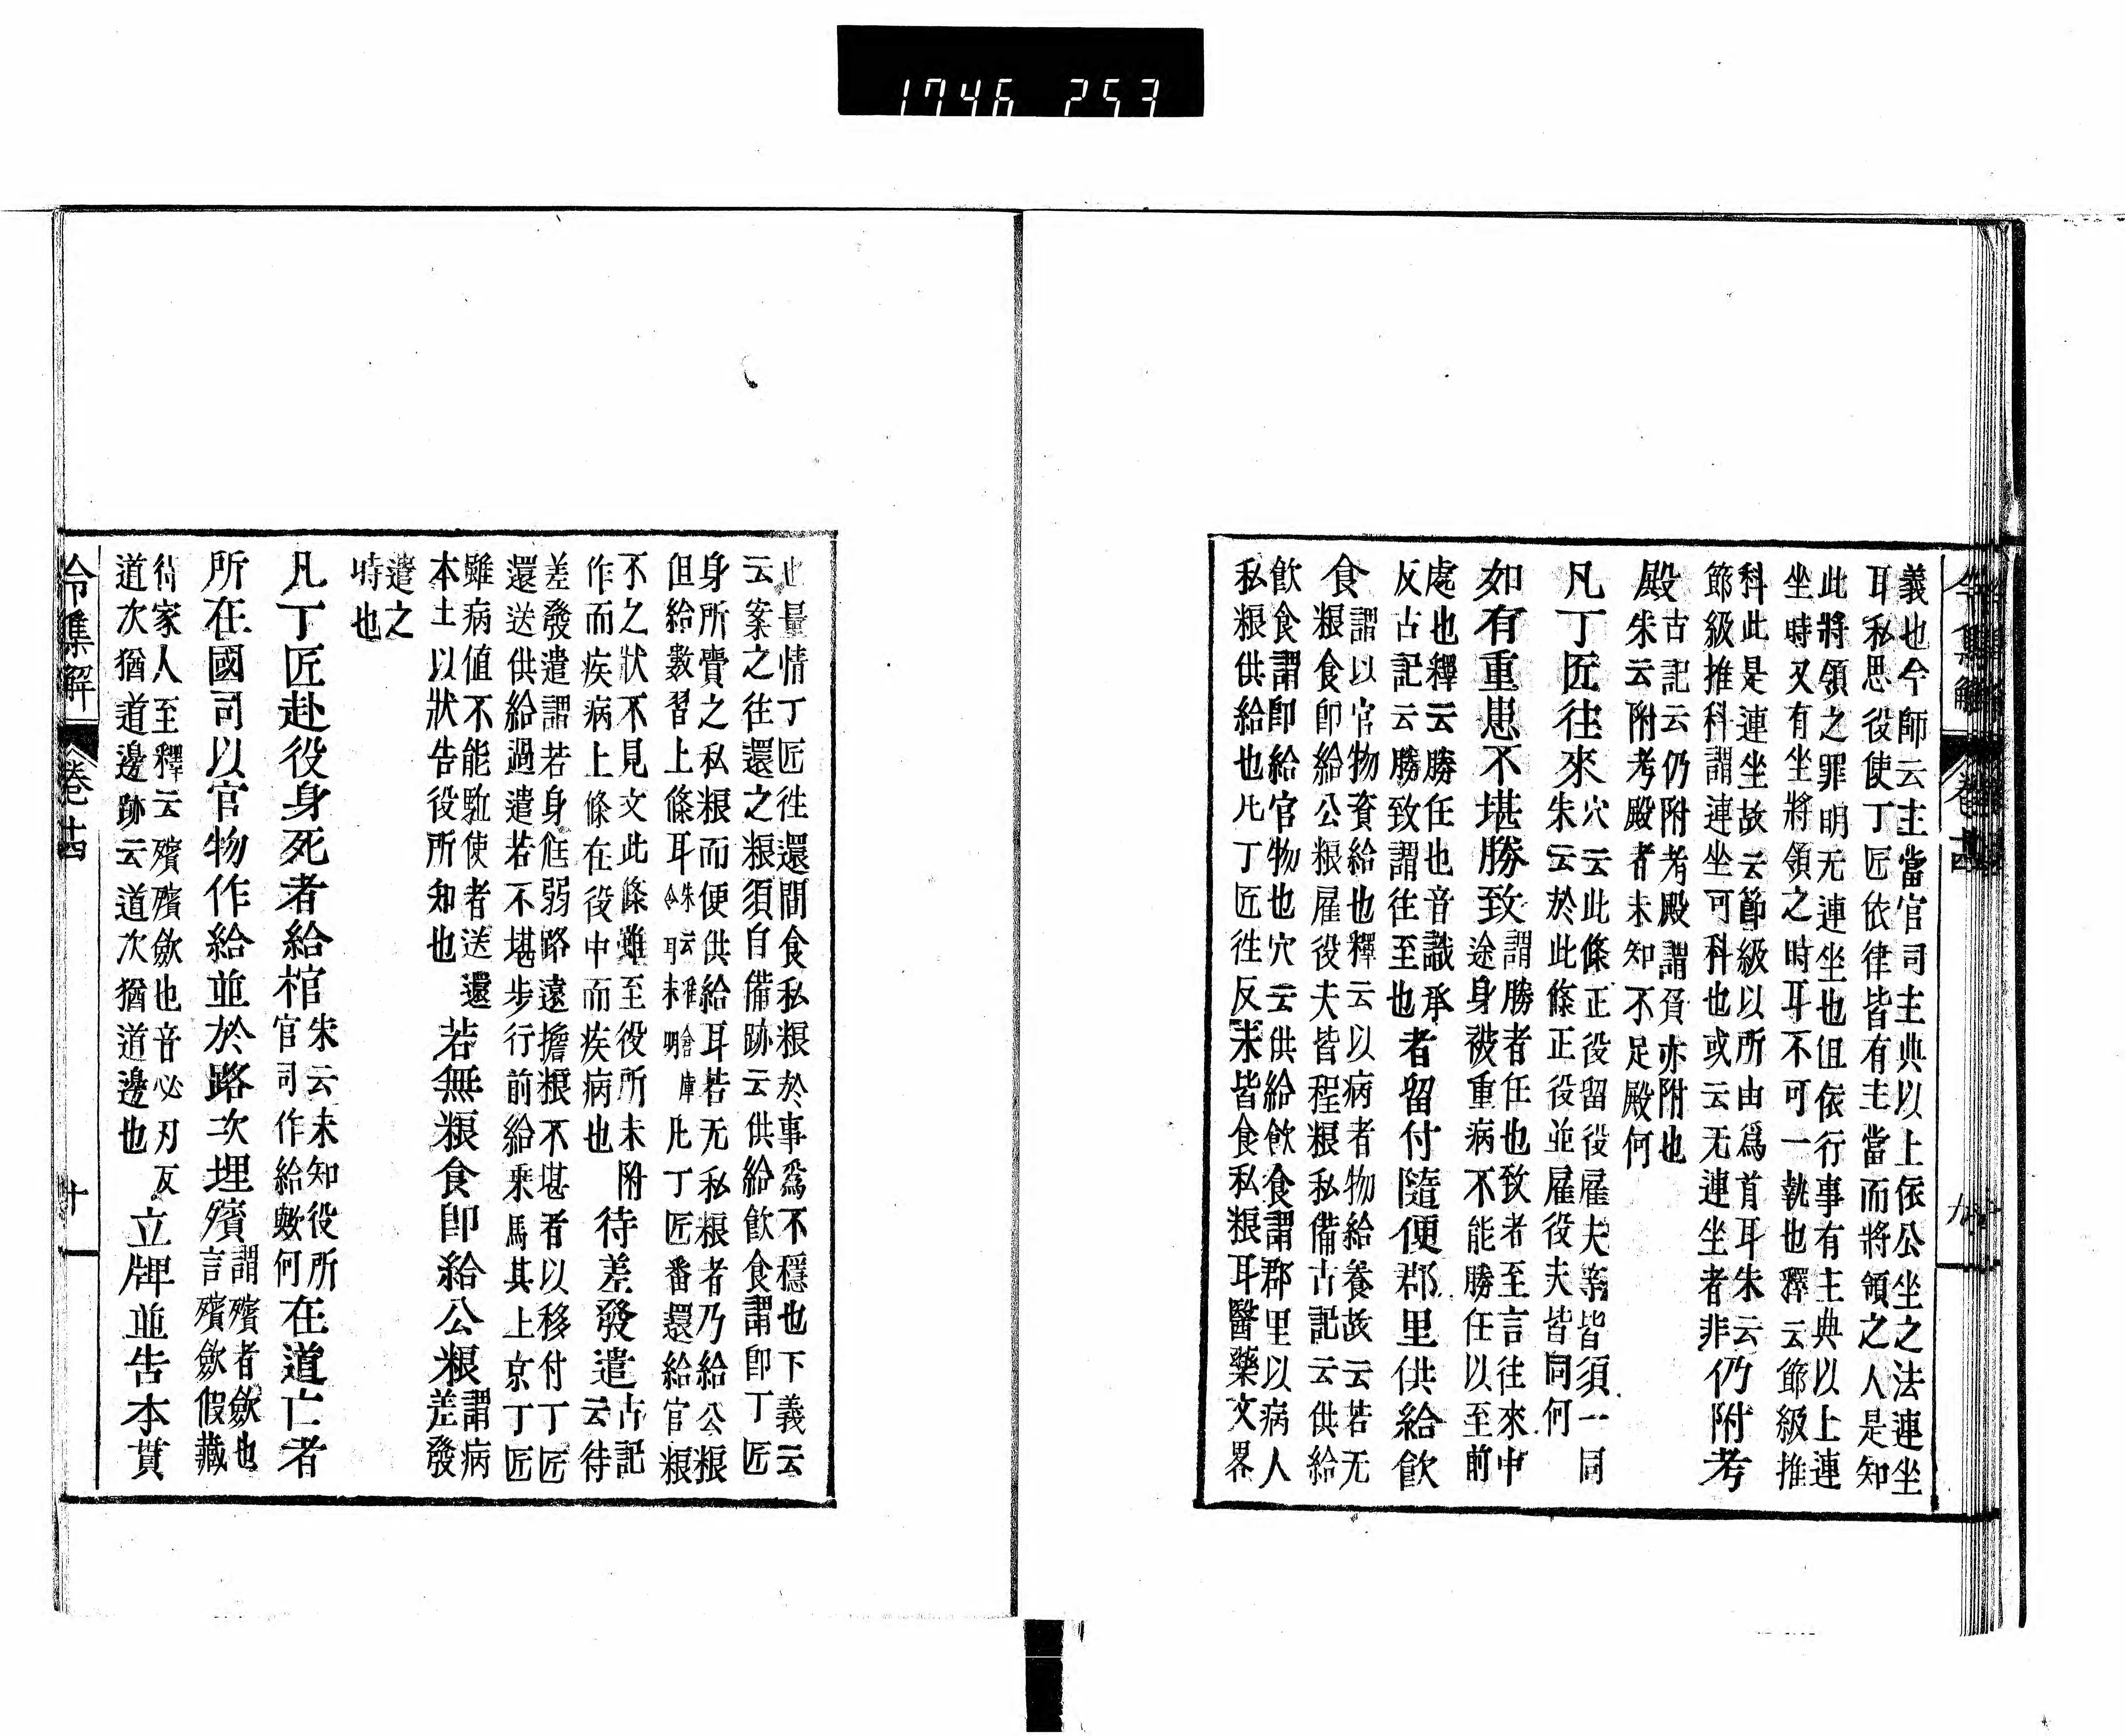 1746 253
義也今師云主當官司主典以上依公坐之法連坐
耳私思役使丁匠依律皆有主當而將領之人是知
此將領之罪明无連坐也但依行事有主典以上連
坐時又有坐將領之時耳不可一執也釋云節級推
科此是連坐故云節級以所由爲首耳朱云
節級推科謂連坐可科也或云无連坐者非仍附考
殿古記云仍附考殿謂負亦附也
朱云附考殿者未知不足殿何
凡丁匠往來穴云此條正役留役雇夫等皆須一同
朱云於此條正役並雇役夫皆同何
如有重患不堪勝致謂勝者任也致者至言往來中
途身被重病不能勝任以至前
處也釋云勝任也音識承
反古記云勝致謂往至也者留付隨便郡里供給飲
食謂以官物資給也釋云以病者物給養故云若无
粮食即給公粮雇役夫皆程粮私備古記云供給
飲食謂即給官物也穴云供給飲食謂郡里以病人
私粮供給也凡丁匠往反未皆食私粮耳醫藥文畧
也量情丁匠往還間食私粮於事爲不穩也下義云
云案之往還之粮須自備跡云供給飲食謂即丁匠
身所賷之私粮而便供給耳若无私粮者乃給公粮
但給數習上條耳朱云唯會庫
令耳未明凡丁匠番還給官粮
不之狀不見文此條雖至役所未附
作而疾病上條在役中而疾病也待差發遣古記
云待
差發遣謂若身尫弱路遠擔粮不堪者以移付丁匠
還送供給過遣若不堪步行前給乘馬其上京丁匠
雖病値不能駈使者送還
本土以狀告役所知也若無粮食即給公粮謂病
差發
遣之
時也
凡丁匠赴役身死者給棺朱云未知役所
官司作給數何在道亡者
所在國司以官物作給並於路次埋殯謂殯者歛也
言殯歛假藏
待家人至釋云殯殯歛也音必刃反
道次猶道邊跡云道次猶道邊也立牌並告本貫
令集解 卷十四 十